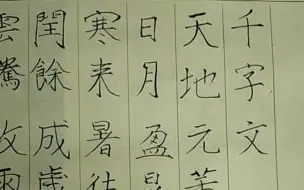 千字文
天地元
日月盈
寒来暑往
閏餘成歲
雲騰